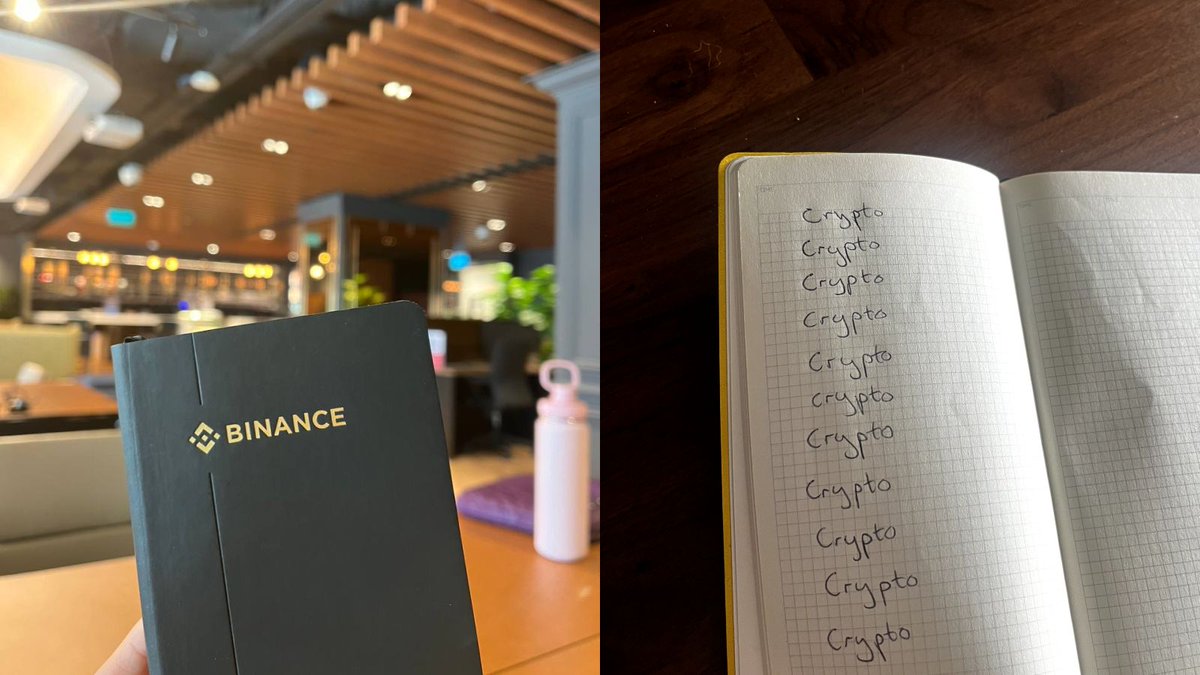 BINANCE
Crypto
Crypto
Crypto
Crypto
Crypto
Crypto
Crypto
Crypto
Crypto
Crypto
Crypto